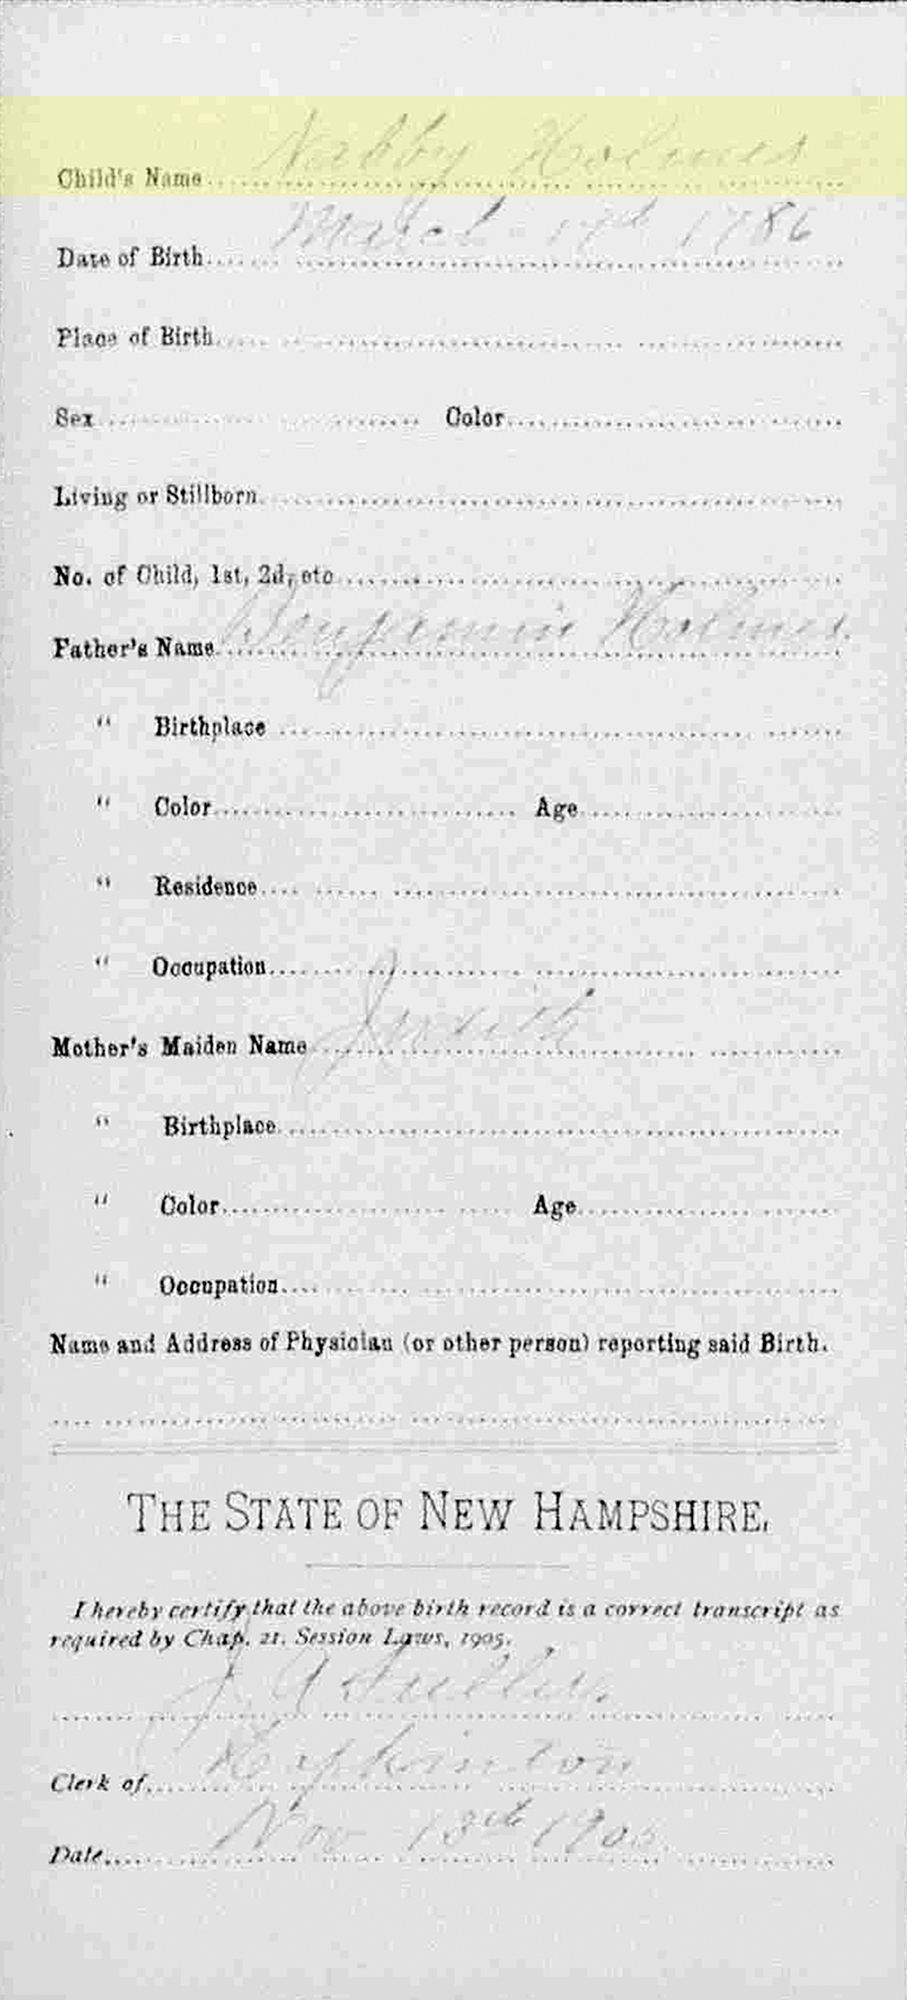 Child's Name Nabby Holmes
Date of Birth March 17th 1786
Place of Birth
Sex Color
Living or Stillborn
No. of Child, 1st, 2d, etc
Father's Name Benjamin Holmes
" Birthplace
" Color Age
" Residence
" Occupation
Mother's Maiden Name
" Birthplace
" Color Age
" Occupation
Name and Address of Physician (or other person) reporting said Birth.
THE STATE OF NEW HAMPSHIRE.
I hereby certify that the above birth record is a correct transcript as
required by Chap. 21. Session Laws, 1905.
J A
Clerk of Hopkinton
Date Nov 13th